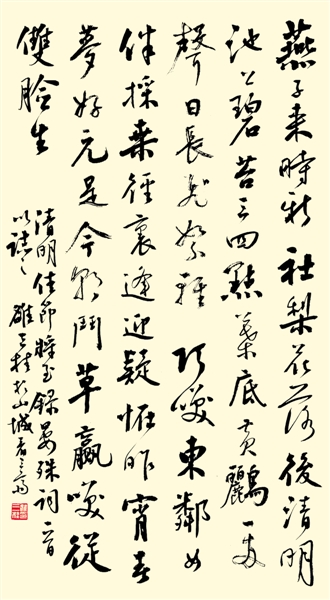 燕子來時新社梨花落後清明
池上碧苔三四點葉底黃鸝一兩
聲日長飛絮輕 巧笑東鄰女
伴採桑徑裏逢迎疑怪昨宵春
夢好元是今朝鬥草贏笑從
雙臉生
清明佳節將至錄晏殊詞一首
以誌之 村於山城